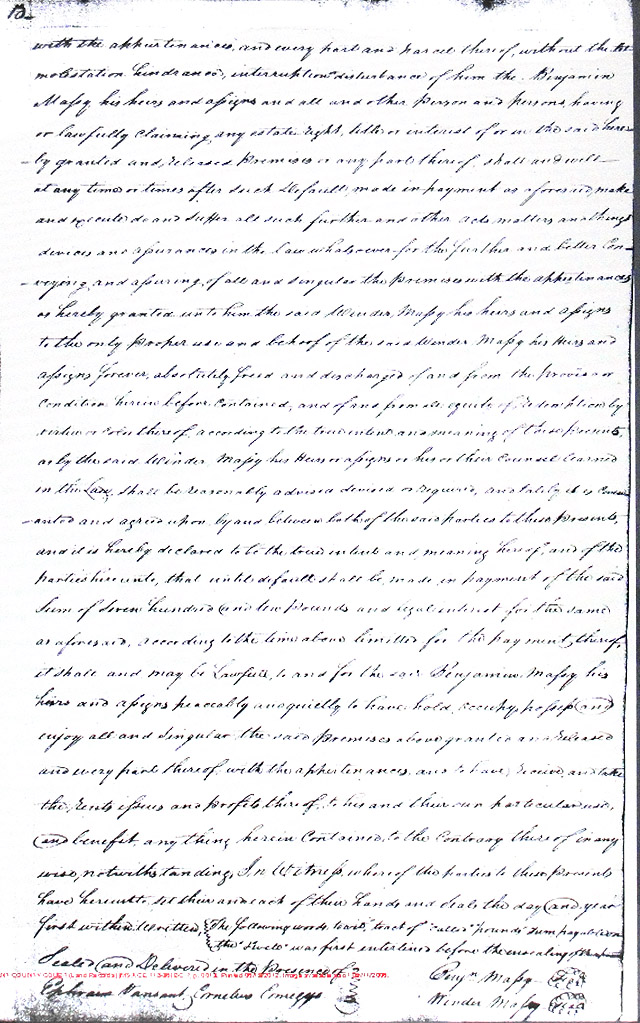 13
with the appurtinances, and every part and Parcel thereof, without the
molestation hindrance, interruption disturbance of him the Benjamin
Massy his heirs and assigns and all and other Person and Persons, having
or lawfully Claiming, any estate right, title or interest of or in the said here
by granted and released Premises or any part thereof, shall and will
at any time or times after such Default, made in payment as aforesaid, make
and execute do and suffer all such further and other acts matters and things
devices and assurances in the law whatsoever for the further and better Con
veying, and assuring, of all and singular the Premises with the appurtinances
as hereby granted unto him the said Winder, Massy his heirs and assigns
to the only Proper use and behoof of the said Winder Massy his Heirs and
assigns forever, absolutely freed and discharged of and from the Proviso or
Condition herein before Contained, and of and from all equity of redemption by
thereof, according to the true intent and meaning of these Presents,
as by the said Winder Massy his Heirs or assigns or his or their Counsel learned
in the Law, shall be reasonably advised devised or required, and lastly it is Coven
anted and agreed upon by and between both of the said parties to these Presents,
and it is hereby declared to be the true intent and meaning hereof, and of the
Parties hereunto, that until default shall be, made, in payment of the said
Sum of Seven hundred and ten Pounds and legal interest for the same
as aforesaid, according to the time above limitted for the payment, thereof,
it shall and may be Lawfull, to and for the said Benjamin Massy his
heirs and assigns peaceably and quietly to have hold, occupy, possess and
enjoy all and Singular the said Premises above granted and released
and every part thereof, with the appurtinances, and to have, receive, and take
the Rents issues and Profits thereof, to his and their own particular use,
and benefit, any thing herein Contained, to the Contrary thereof in any
wise, notwithstanding, In Witness, whereof the parties to these Presents
have hereunto set their and each of their Hands and Seals the day and year
first within Written, The following words to wit, tract of "called" pounds
the was first interlined before the ensealing
Sealed and Delivered in the Presence of
Benjn Massy Seal
Ephraim Vansant, Cornelius Comegys
Winder Massy Seal